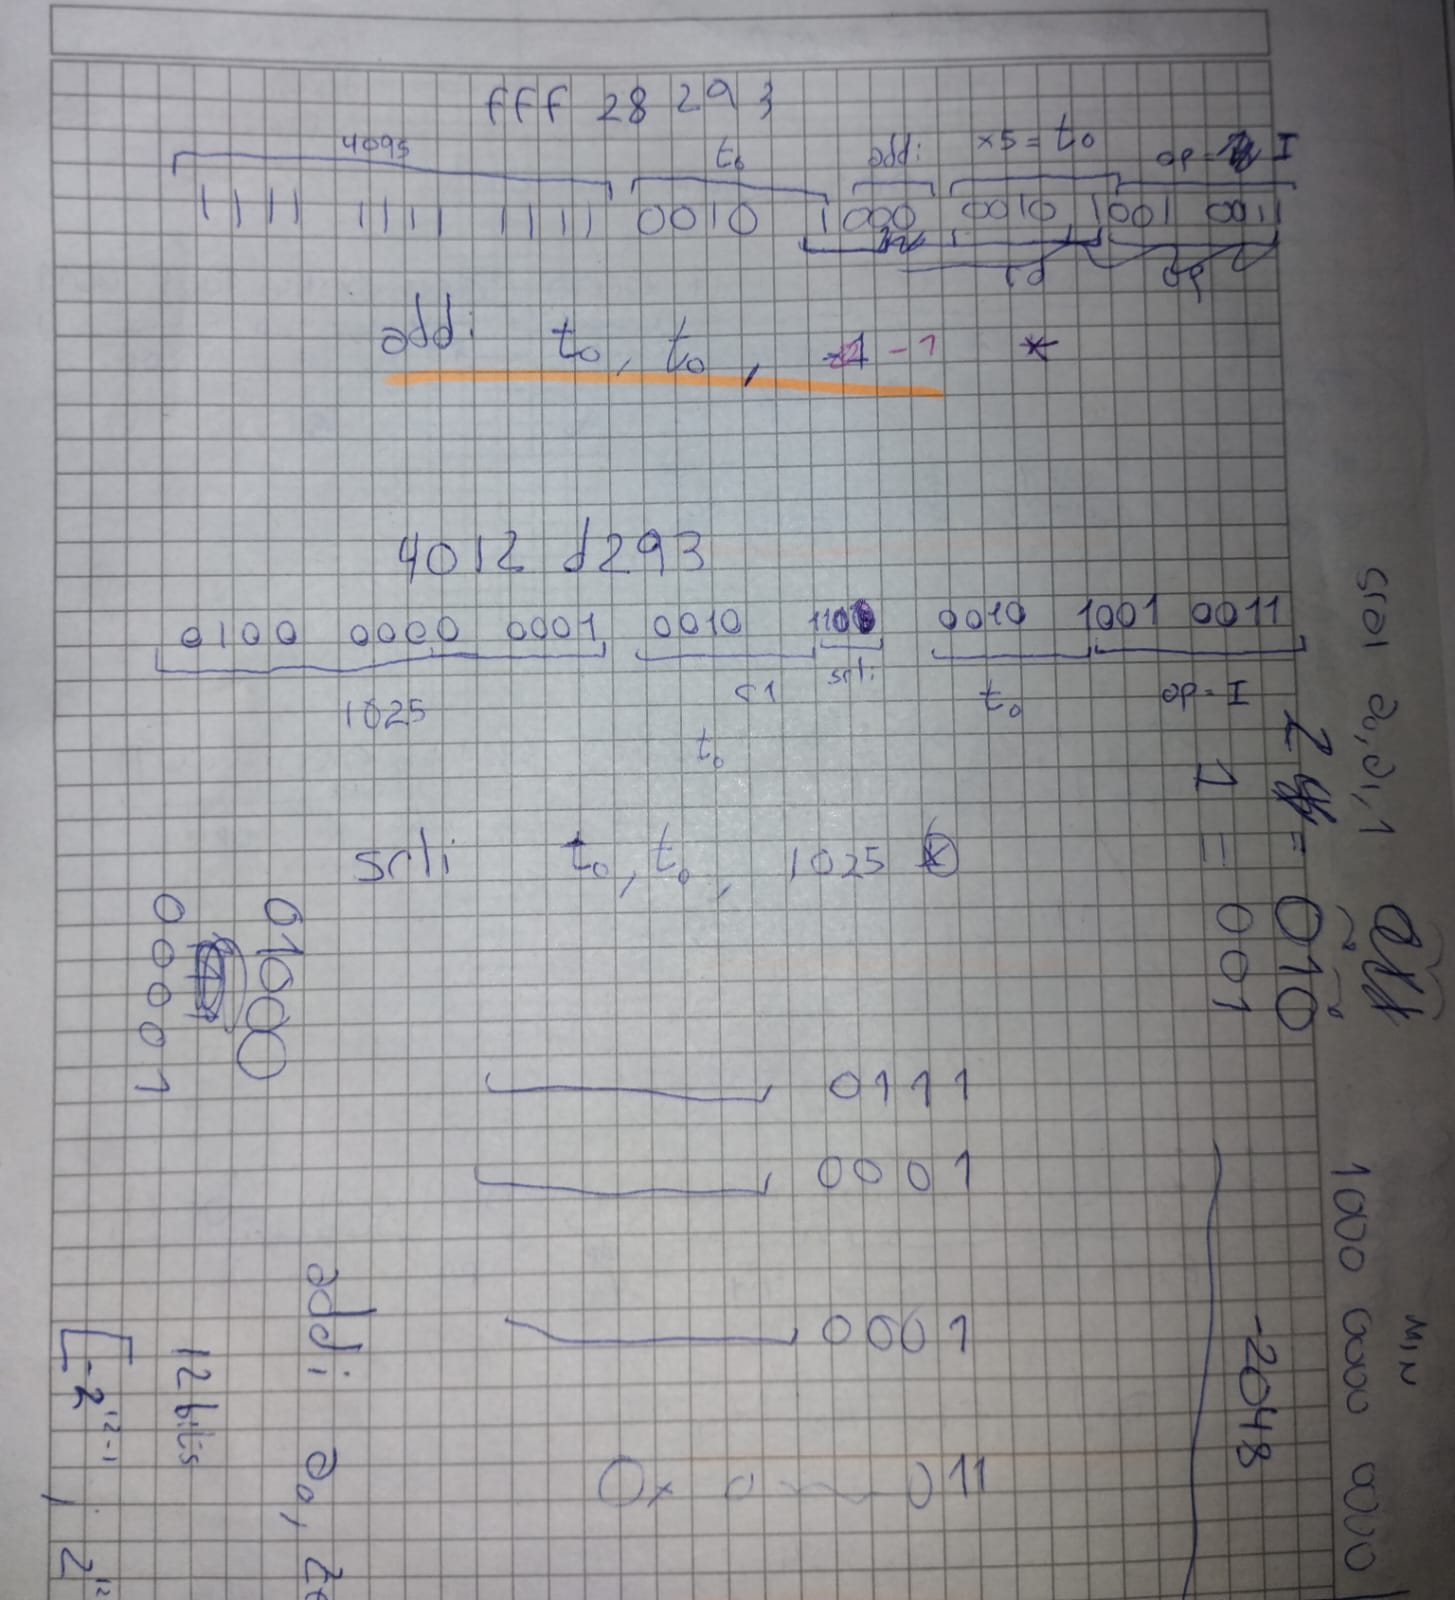 fff 28 293
4095 t0 addi x5 = t0 op = I
1111 1111 1111 0010 1000 0010 1001 0011
rd op
addi t0, t0, -1 *
4012 d293
0100 0000 0001 0010 1101 0010 1001 0011
1025 r1 srli t0 op = I
t0
srli t0, t0, 1025
0111
0001
0001
0x 0 011
srai a0, a1, 1
2 = 010
1 = 001
01000
00001
MIN
1000 0000 0000
-2048
addi a0,
12 bits
[-2^12-1, 2^12